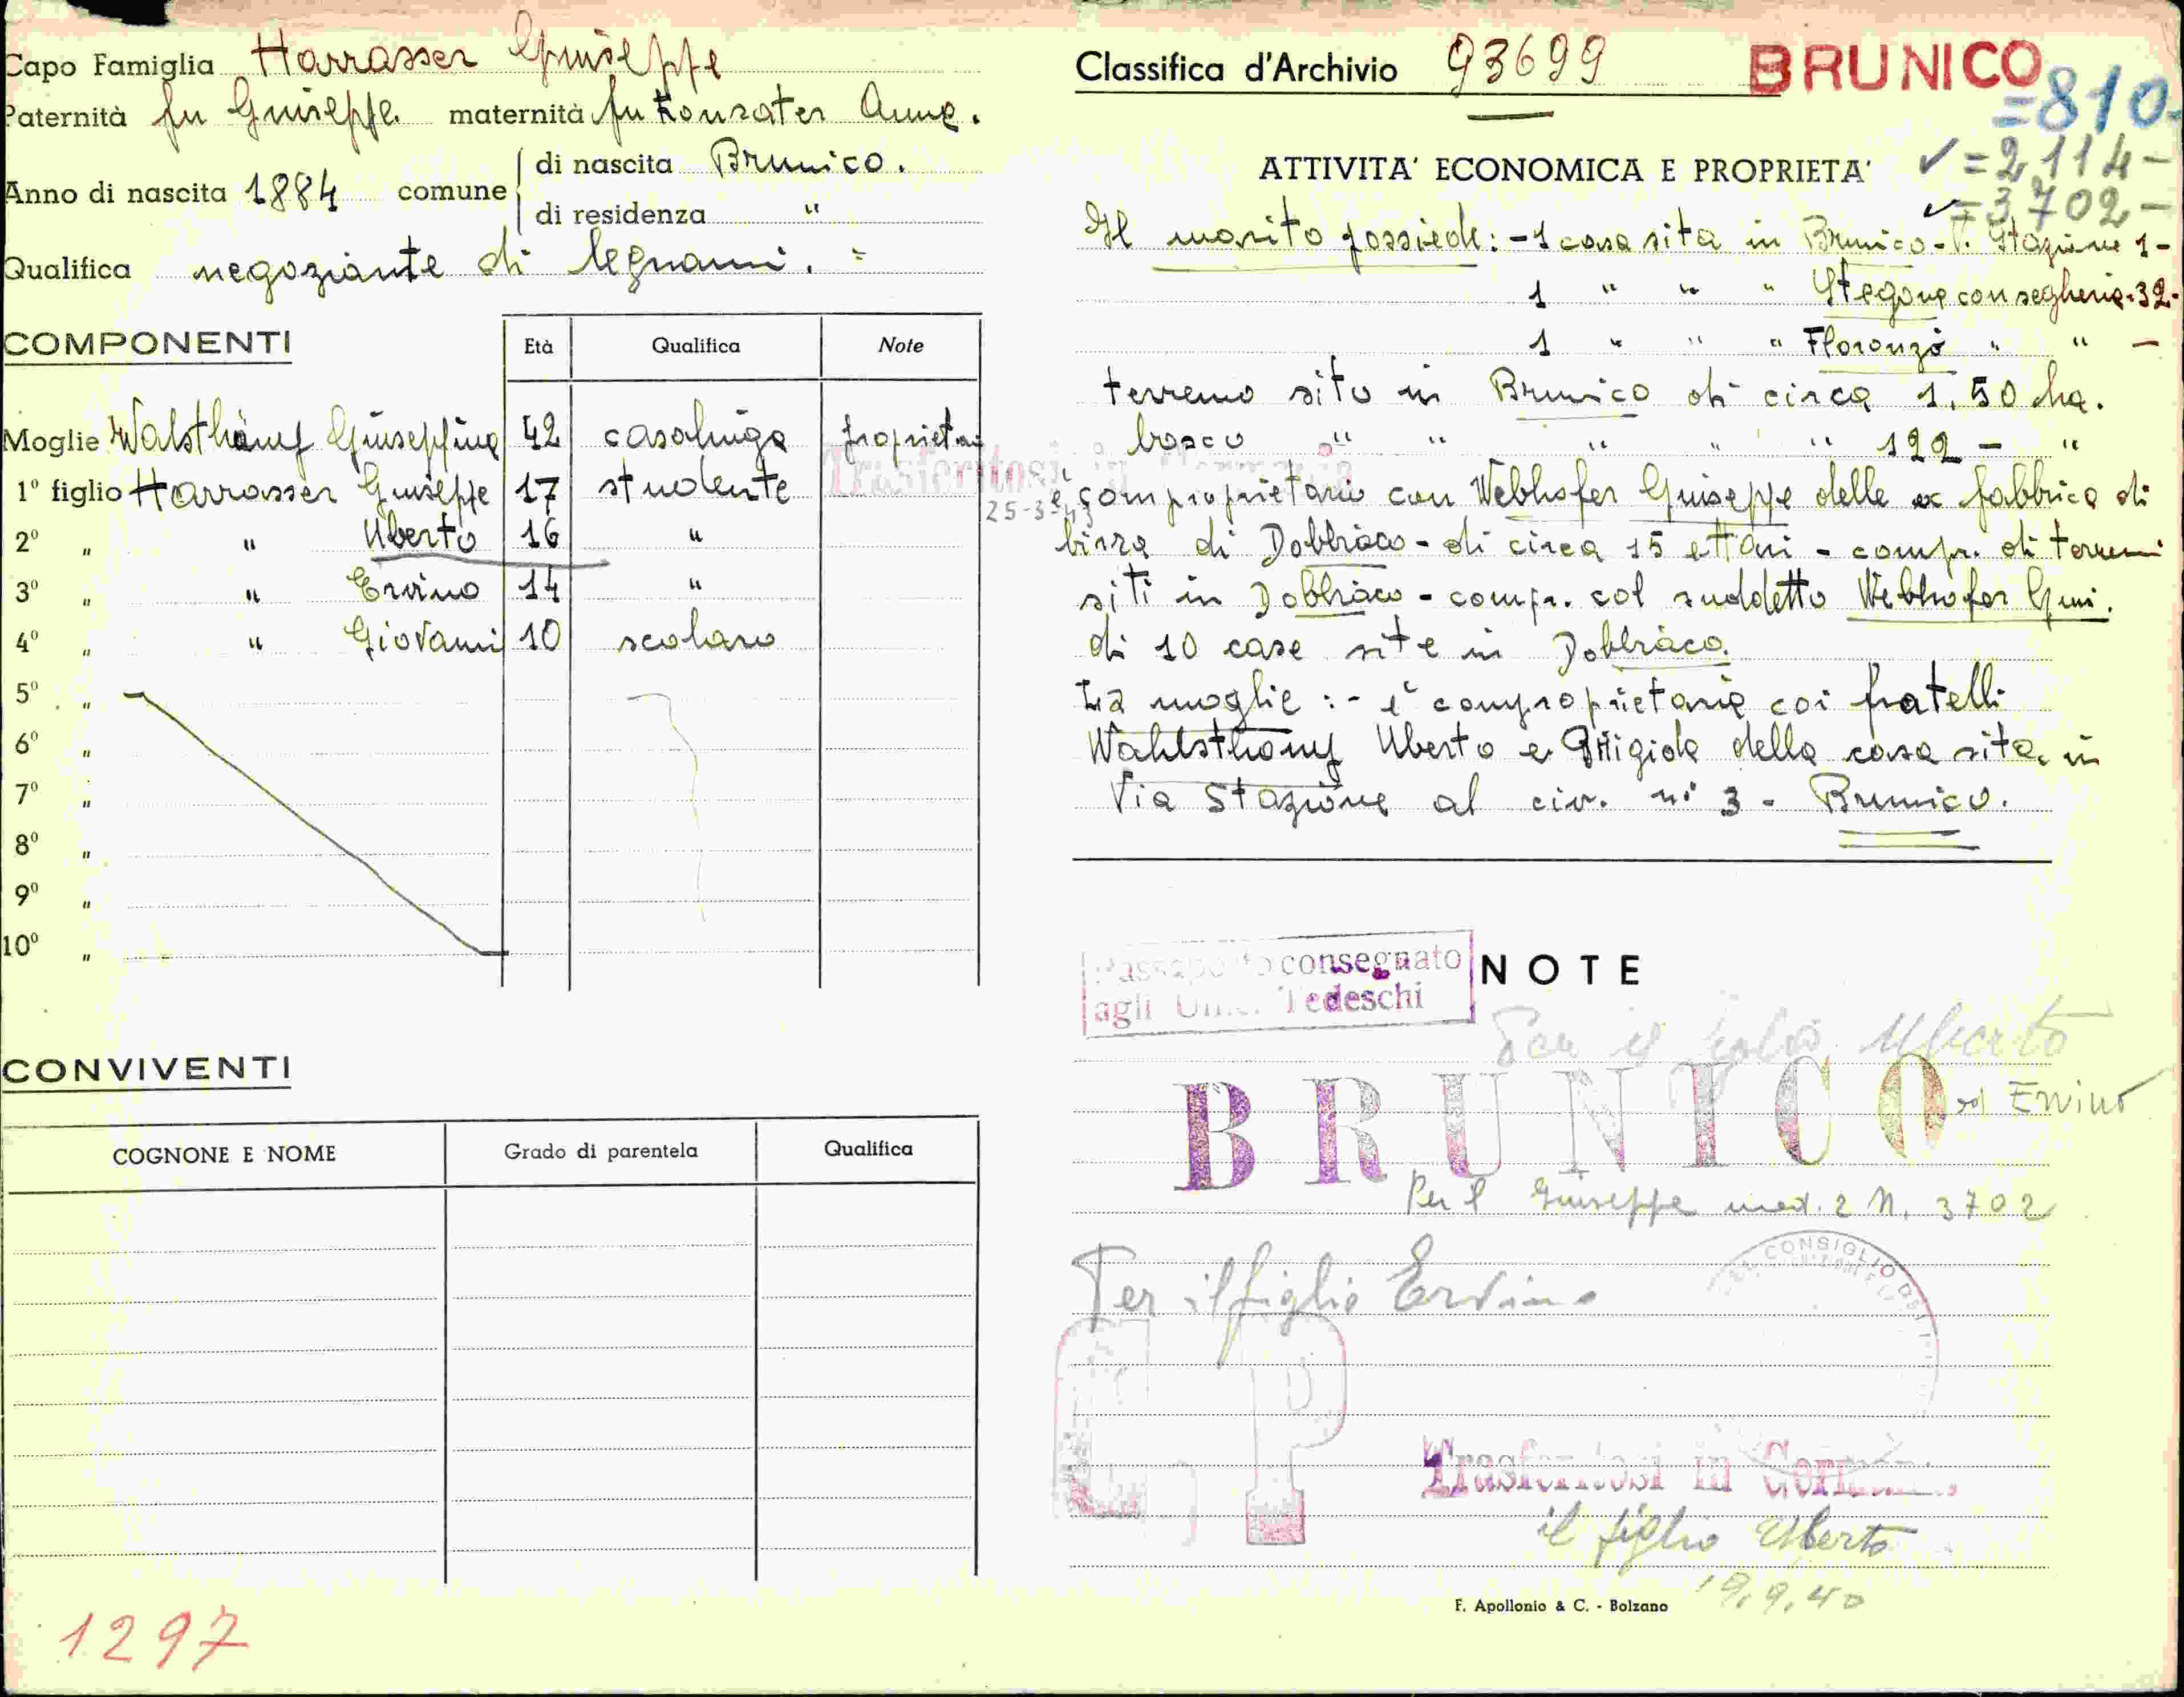 Capo Famiglia Harrasser Giuseppe
Paternità fu Giuseppe maternità fu Konrater Anna.
Anno di nascita 1884 comune di nascita Brunico.
di residenza "
Qualifica negoziante di legnami.
COMPONENTI Età Qualifica Note
Moglie Giuseppina 42 casalinga proprietar
1º figlio Harrasser Giuseppe 17 studente
2º " " Uberto 16 "
3º " " Ervino 14 "
4º " " Giovanni 10 scolaro
5º "
6º "
7º "
8º "
9º "
10º "
CONVIVENTI
COGNONE E NOME Grado di parentela Qualifica
1297
Classifica d'Archivio 93699
BRUNICO
=810-
=2114-
=3702-
ATTIVITA' ECONOMICA E PROPRIETA'
Il marito possiede: - 1 casa sita in Brunico - V. Stazione 1-
1 " " " Stegona con segheria-32-
1 " " " Floronzo " " -
terreno sito in Brunico di circa 1,50 ha.
bosco " " " " " 122 - "
Trasferitosi in Germania
25-3-43
è comproprietario con Webhofer Giuseppe della ex fabbrica di
birra di Dobbiaco - di circa 15 ettari - compr. di terreni
siti in Dobbiaco - compr. col suddetto Webhofer Giu.
di 10 case site in Dobbiaco.
La moglie : - è comproprietaria coi fratelli
Uberto e della casa sita in
Via Stazione al civ. nº 3 - Brunico.
Passaporto consegnato
agli Uffici Tedeschi
NOTE
Per il figlio Uberto
ed Ervino
BRUNICO
Per il Giuseppe mod. 2 N. 3702
Per il figlio Ervino
CONSIGLIO
P
Trasferitosi in Germania
il figlio Uberto
19.9.40
F. Apollonio & C. - Bolzano